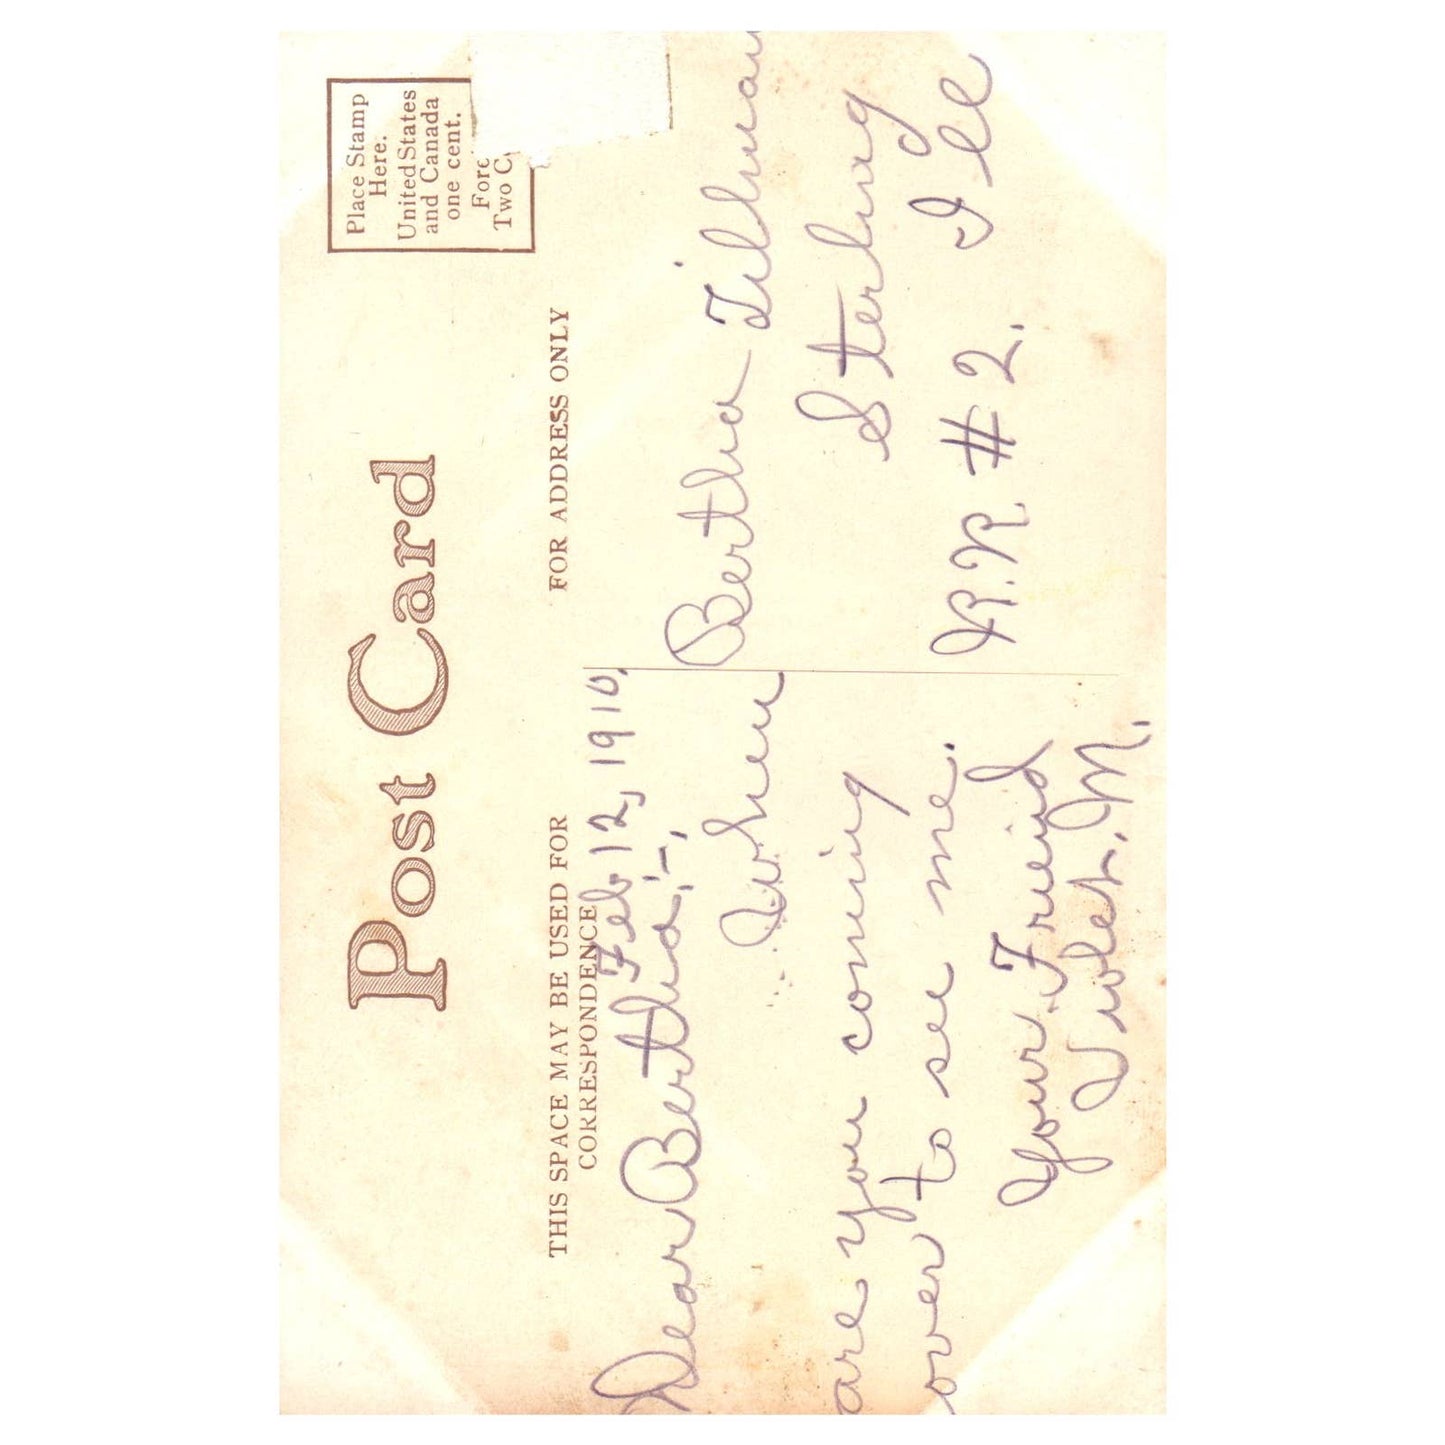 Post Card
Place Stamp
Here.
United States
and Canada
one cent.
Two
THIS SPACE MAY BE USED FOR
CORRESPONDENCE
FOR ADDRESS ONLY
Feb 12, 1910.
Dear Bertha:-,
When
are you coming
over to see me.
Your Friend
Violet. M.
Bertha Tilman
Sterling
R.R. #2. Ill